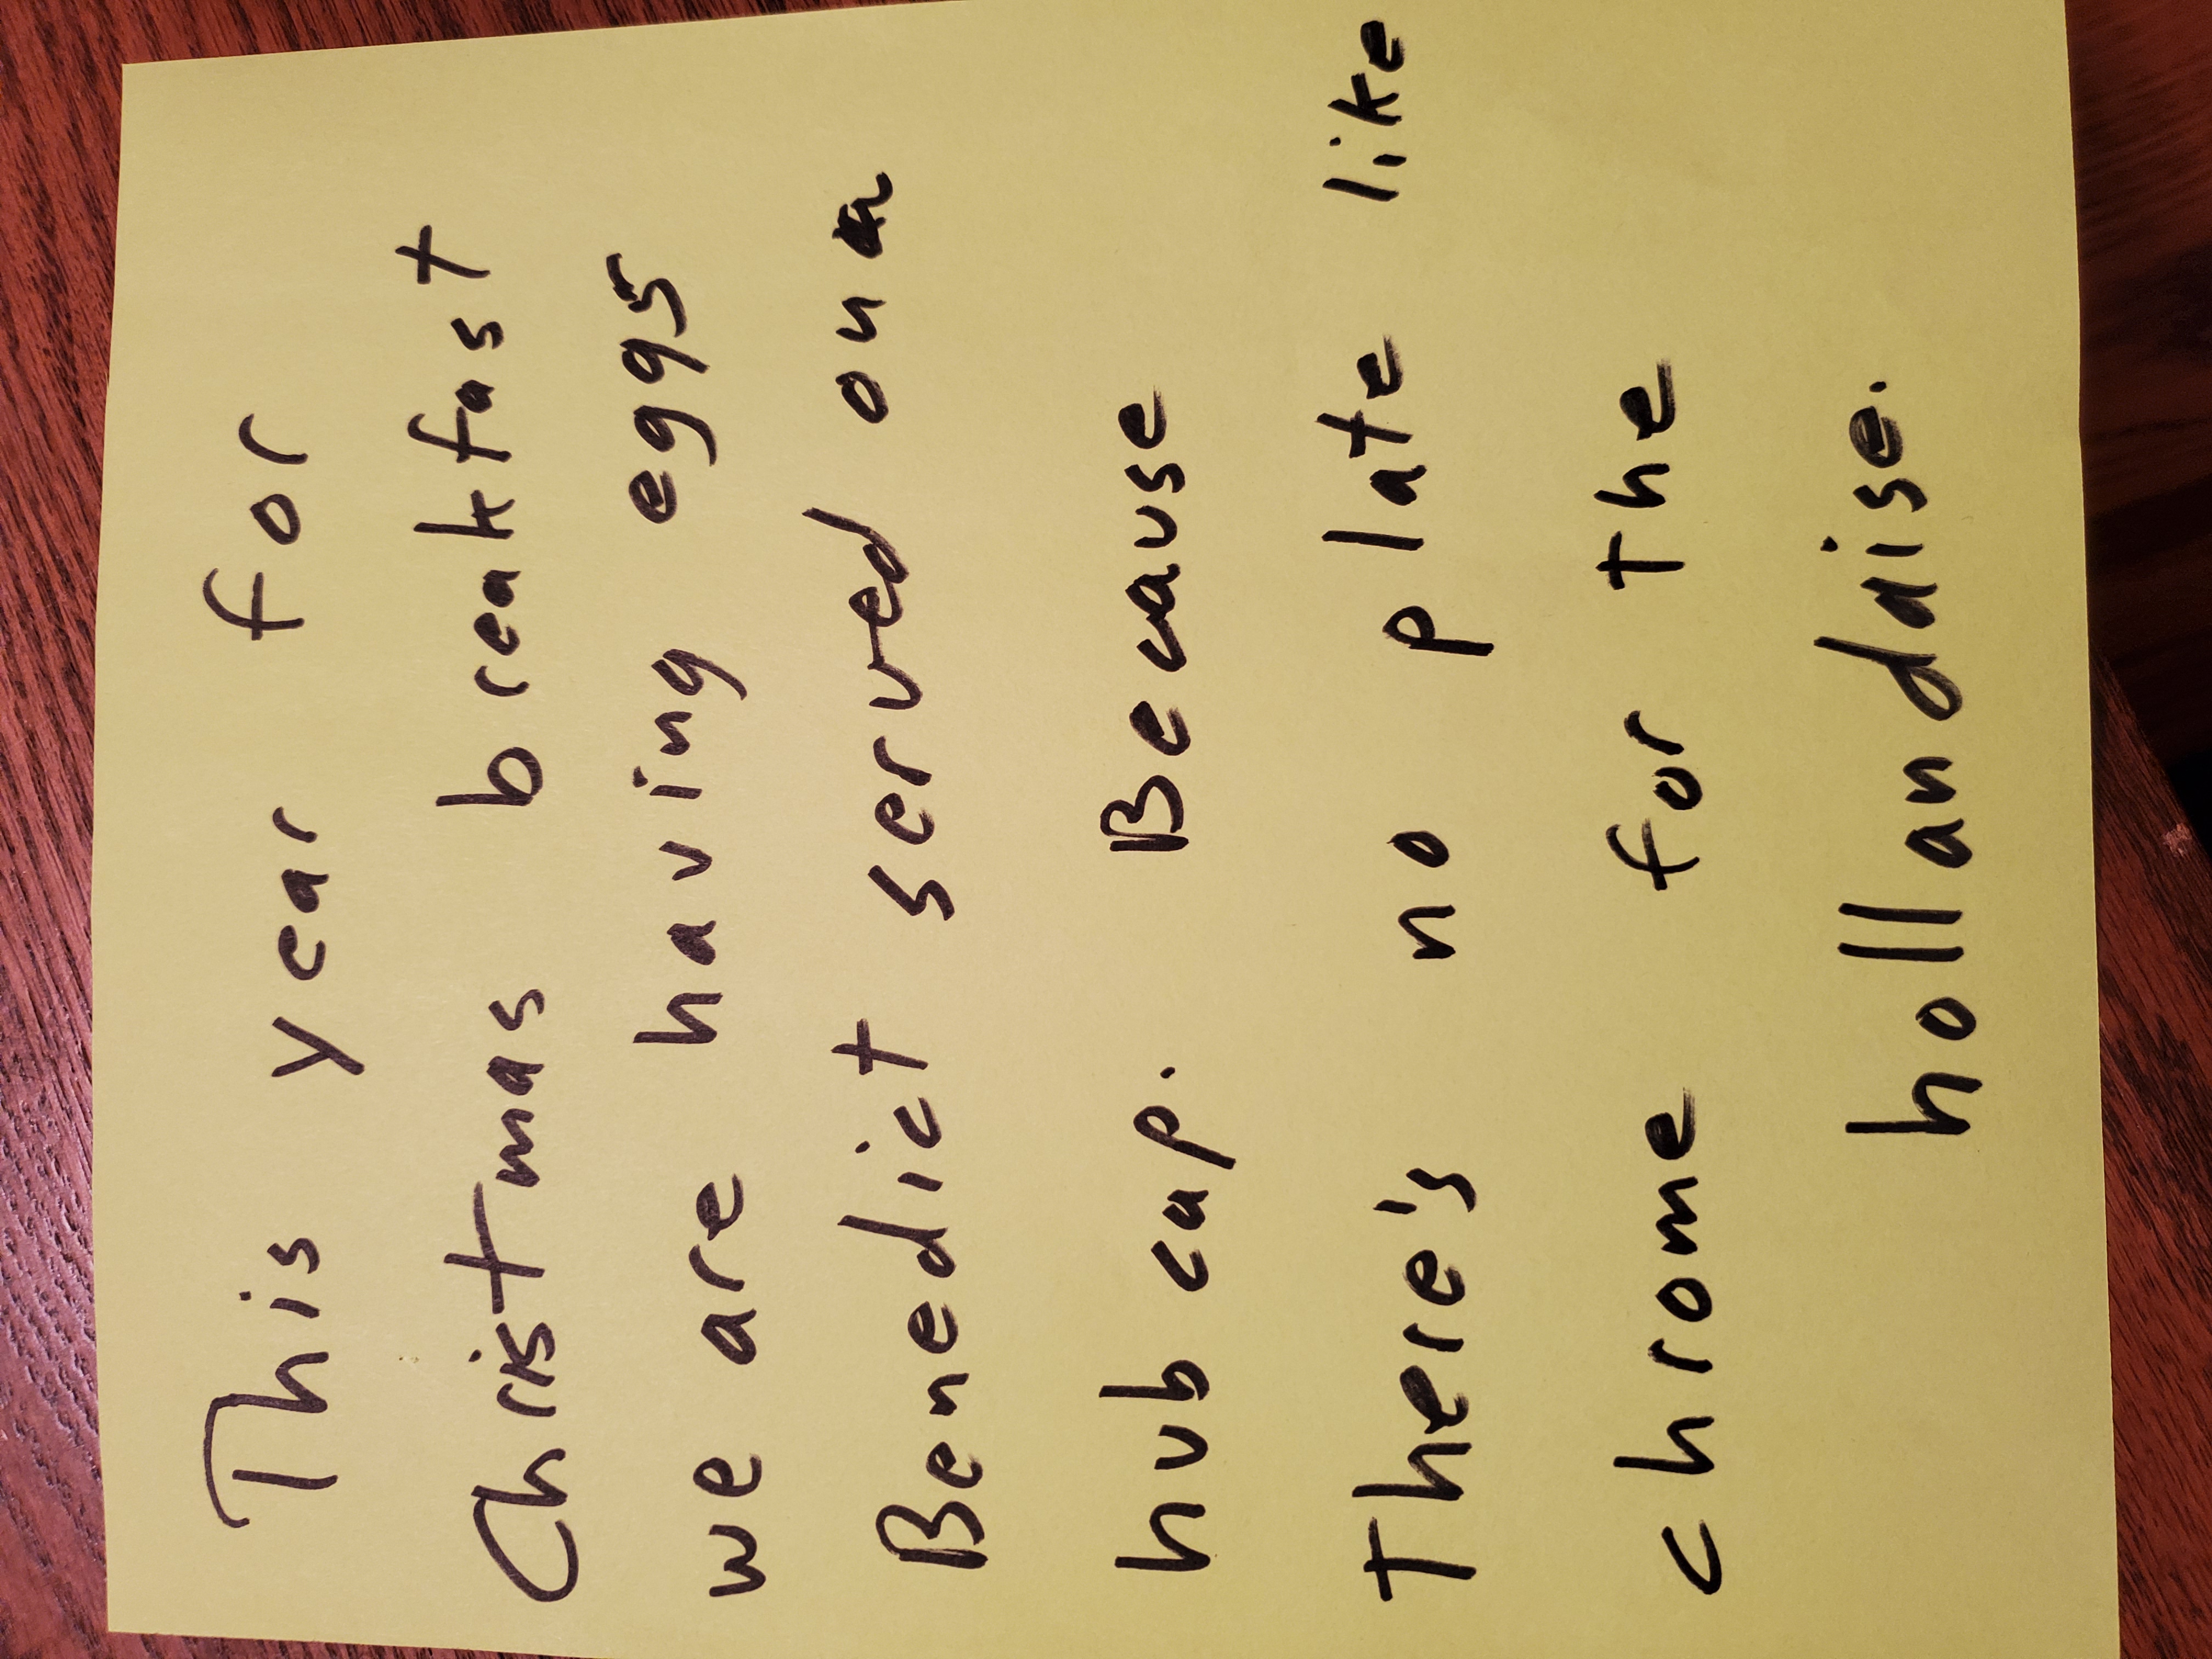 This year for
Christmas breakfast
we are having eggs
Benedict served on a
hub cap. Because
there's no plate like
chrome for the
hollandaise.